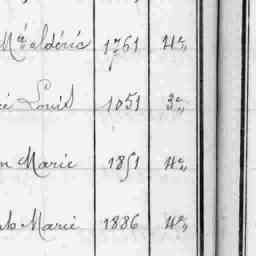 Mé aldéric 1761 4e
Louis 1051 3e
Marie 1851 4e
Marie 1886 4e